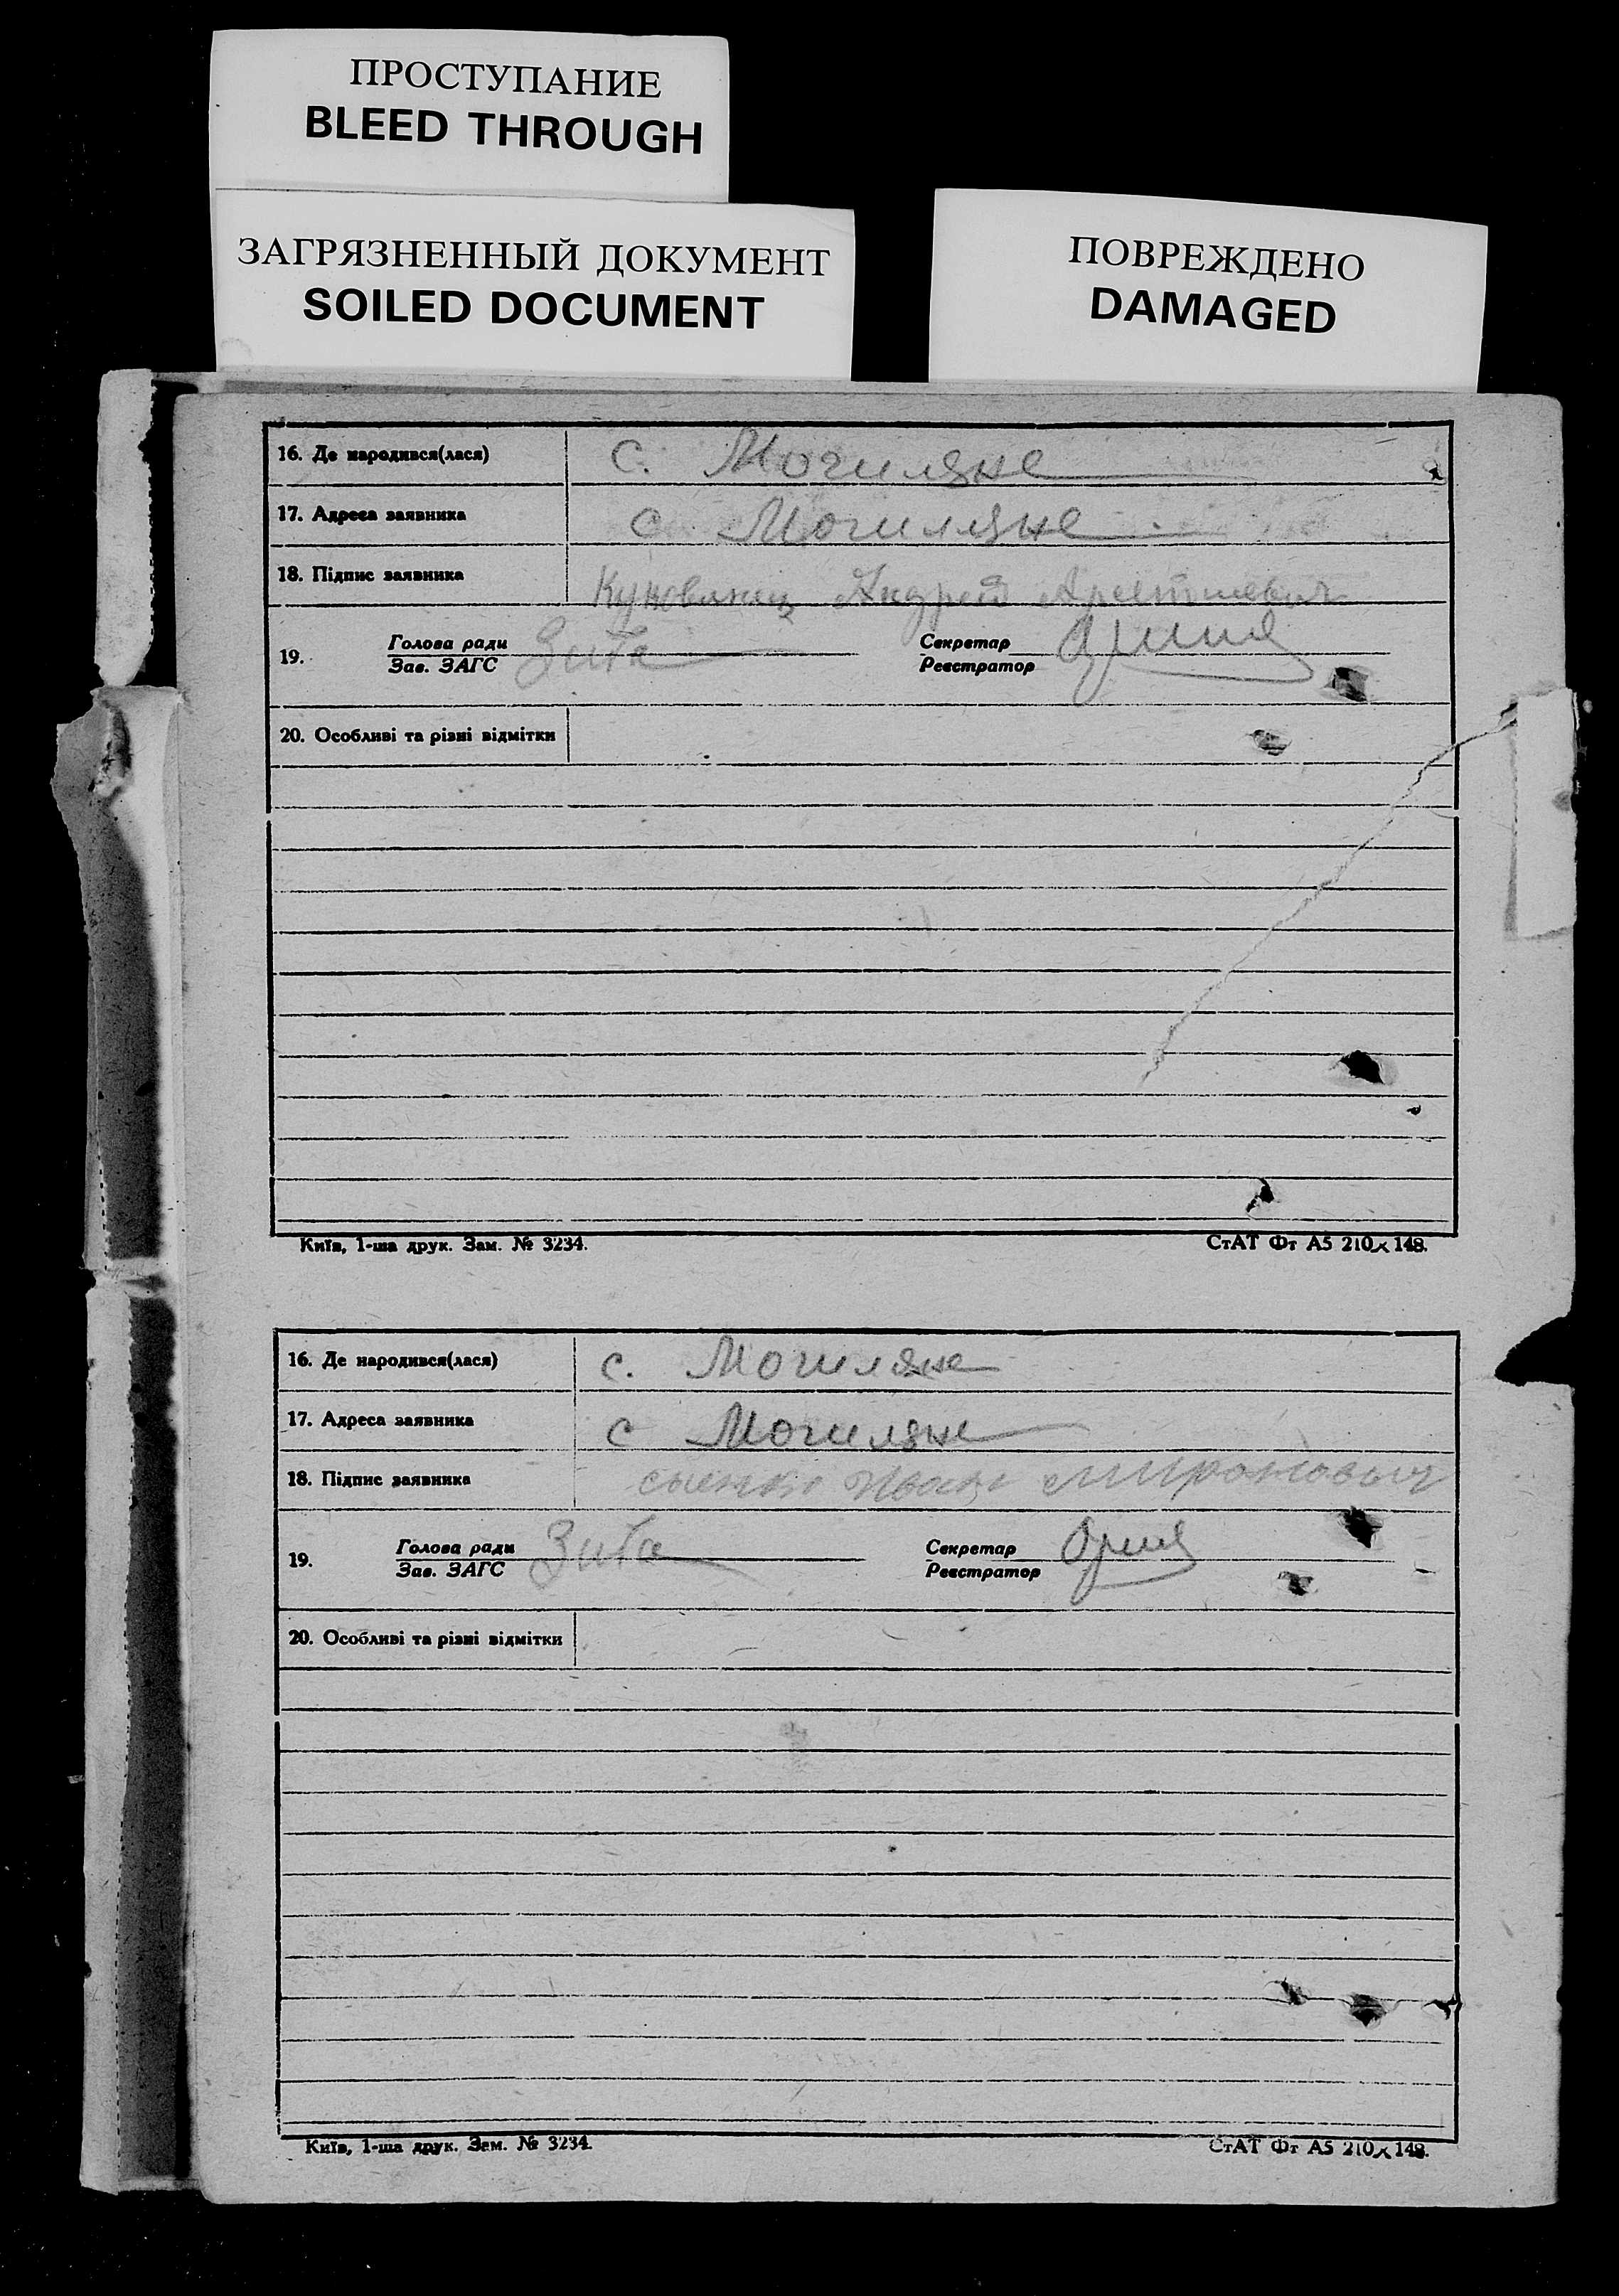 ПРОСТУПАНИЕ
BLEED THROUGH
ЗАГРЯЗНЕННЫЙ ДОКУМЕНТ
SOILED DOCUMENT
ПОВРЕЖДЕНО
DAMAGED
16. Де народився(лася) с. Могиляне
17. Адреса заявника с. Могиляне
18. Підпис заявника Андрей
19. Голова ради Зита Секретар
Зав. ЗАГС Реєстратор
20. Особливі та різні відмітки
Київ, 1-ша друк. Зам. № 3234. СтАТ Фт А5 210×148.
16. Де народився(лася) с. Могиляне
17. Адреса заявника с Могиляне
18. Підпис заявника Иван Миронович
19. Голова ради Зита Секретар
Зав. ЗАГС Реєстратор
20. Особливі та різні відмітки
Київ, 1-ша друк. Зам. № 3234. СтАТ Фт А5 210×148.